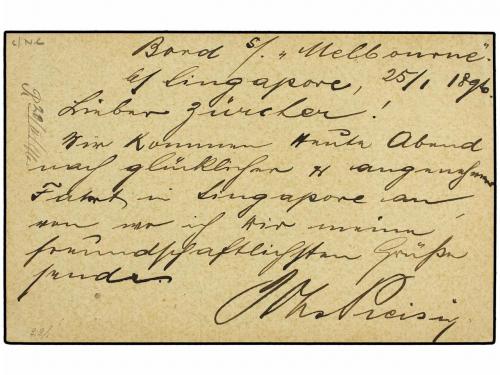 Bord s/. "Melbourne".
b/ Singapore, 25/1 1896.
Lieber Zürcher!
Wir kommen heute Abend
nach glücklicher & angenehmer
Fahrt in Singapore an,
von wo ich Dir meine
freundschaftlichsten Grüße
sende.